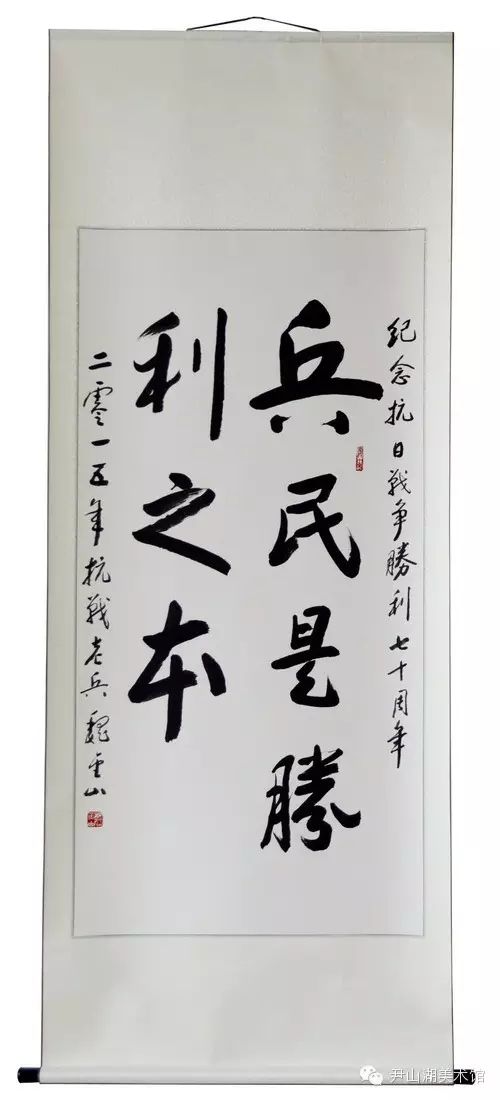 纪念抗日战争勝利七十周年
兵民是勝
利之本
二零一五年抗战老兵魏玉山
尹山湖美术馆